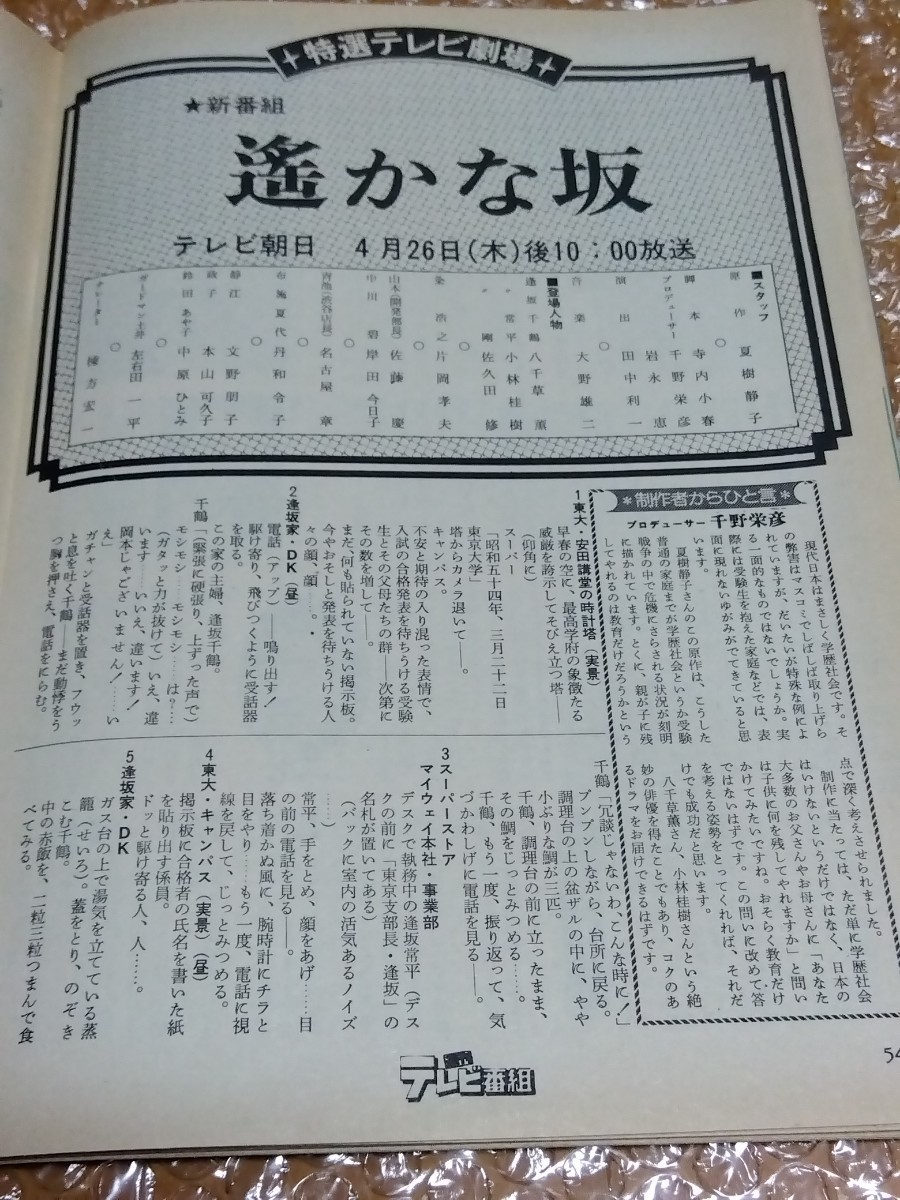 +特選テレビ劇場+
★新番組
遙かな坂
テレビ朝日 4月26日(木)後10:00放送
■スタッフ
原作 夏樹静子
○
脚本 寺内小春
プロデューサー 千野栄彦
岩永恵
演出 田中利一
○
音楽 大野雄二
■登場人物
逢坂千鶴 八千草薫
〃 常平 小林桂樹
〃 剛 佐久田修
○
粂浩之 片岡孝夫
○
山本(開発部長) 佐藤慶
中川碧 岸田今日子
○
青池(渋谷店長) 名古屋章
○
布施夏代 丹和令子
○
静江 文野朋子
政子 本山可久子
鈴田あや子 中原ひとみ
○
ガードマン土井 左右田一平
○
ナレーター 棟方宏一
*制作者からひと言*
プロデューサー 千野栄彦
現代日本はまさしく学歴社会です。そ
の弊害はマスコミでしばしば取り上げら
れていますが、だいたいが特殊な例によ
る一面的なものではないでしょうか。実
際には受験生を抱えた家庭などでは、表
面に現れないゆがみがでてきていると思
います。
夏樹静子さんのこの原作は、こうした
普通の家庭までが学歴社会というか受験
戦争の中で危機にさらされる状況が刻明
に描かれています。とくに、親が子に残
してやれるのは教育だけだろうかという
点で深く考えさせられました。
制作に当たっては、ただ単に学歴社会
はいけないというだけではなく、日本の
大多数のお父さんやお母さんに「あなた
は子供に何を残してやれますか」と問い
かけてみたいですね。おそらく教育だけ
ではないはずです。この問いに改めて答
を考える姿勢をとってくれれば、それだ
けでも成功だと思います。
八千草薫さん、小林桂樹さんという絶
妙の俳優を得たことでもあり、コクのあ
るドラマをお届けできるはずです。
1 東大・安田講堂の時計塔(実景)
早春の空に、最高学府の象徴たる
威厳を誇示してそびえ立つ塔——
(仰角に)
スーパー
「昭和五十四年、三月二十二日
東京大学」
塔からカメラ退いて——。
キャンパス。
不安と期待の入り混った表情で、
入試の合格発表を待ちうける受験
生とその父母たちの群——次第に
その数を増して——。
まだ、何も貼られていない掲示板。
今やおそしと発表を待ちうける人
々の顔、顔……。
2 逢坂家・DK(昼)
電話(アップ)——鳴り出す!
駆け寄り、飛びつくように受話器
を取る。
この家の主婦、逢坂千鶴。
千鶴「(緊張に硬張り、上ずった声で)
モシモシ……モシモシ……は?…
(ガタッと力が抜けて)いえ、違
います……いえ、違います!……
岡本じゃございません!……い
え」
ガチャンと受話器を置き、フウッ
と息を吐く千鶴。まだ動悸をう
つ胸を押さえ、電話をにらむ。
千鶴「冗談じゃないわ、こんな時に!」
プンプンしながら、台所に戻る。
調理台の上の盆ザルの中に、やや
小ぶりな鯛が三匹。
千鶴、調理台の前に立ったまま、
その鯛をじっとみつめる……。
千鶴、もう一度、振り返って、気
づかわしげに電話を見る——。
3 スーパーストア
マイウェイ本社・事業部
デスクで執務中の逢坂常平(デス
クの前に「東京支部長・逢坂」の
名札が置いてある)
(バックに室内の活気あるノイズ
……)
常平、手をとめ、顔をあげ……目
の前の電話を見る——。
落ち着かぬ風に、腕時計にチラと
目をやり……もう一度、電話に視
線を戻して、じっとみつめる。
4 東大・キャンパス(実景)(昼)
掲示板に合格者の氏名を書いた紙
を貼り出す係員。
ドッと駆け寄る人、人……。
5 逢坂家・DK
ガス台の上で湯気を立てている蒸
籠(せいろ)。蓋をとり、のぞき
こむ千鶴。
中の赤飯を、二粒三粒つまんで食
べてみる。
テレビ番組
54